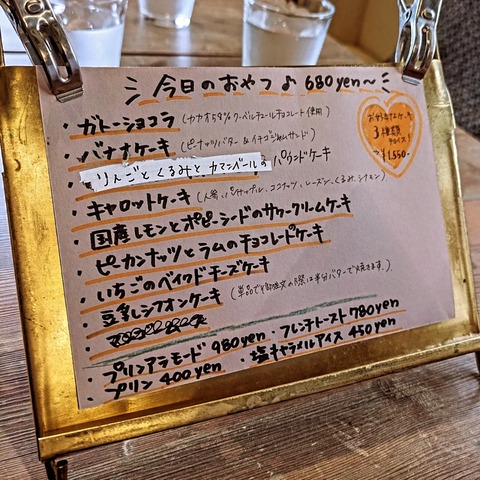 今日のおやつ♪ 680yen〜
・ガトーショコラ (カカオ58%クーベルチュールチョコレート使用)
・バナナケーキ (ピーナッツバター&イチゴジャムサンド)
りんごとくるみとカマンベールのパウンドケーキ
・キャロットケーキ (人参、パイナップル、ココナッツ、レーズン、くるみ、シナモン)
・国産レモンとポピーシードのサワークリームケーキ
・ピーカンナッツとラムのチョコレートケーキ
・いちごのベイクドチーズケーキ
・豆乳シフォンケーキ (単品でご注文の際は半分バターで焼きます。)
・プリンアラモード 980yen ・フレンチトースト 780yen
・プリン 400yen ・塩キャラメルアイス 450yen
3種類
¥1,550-